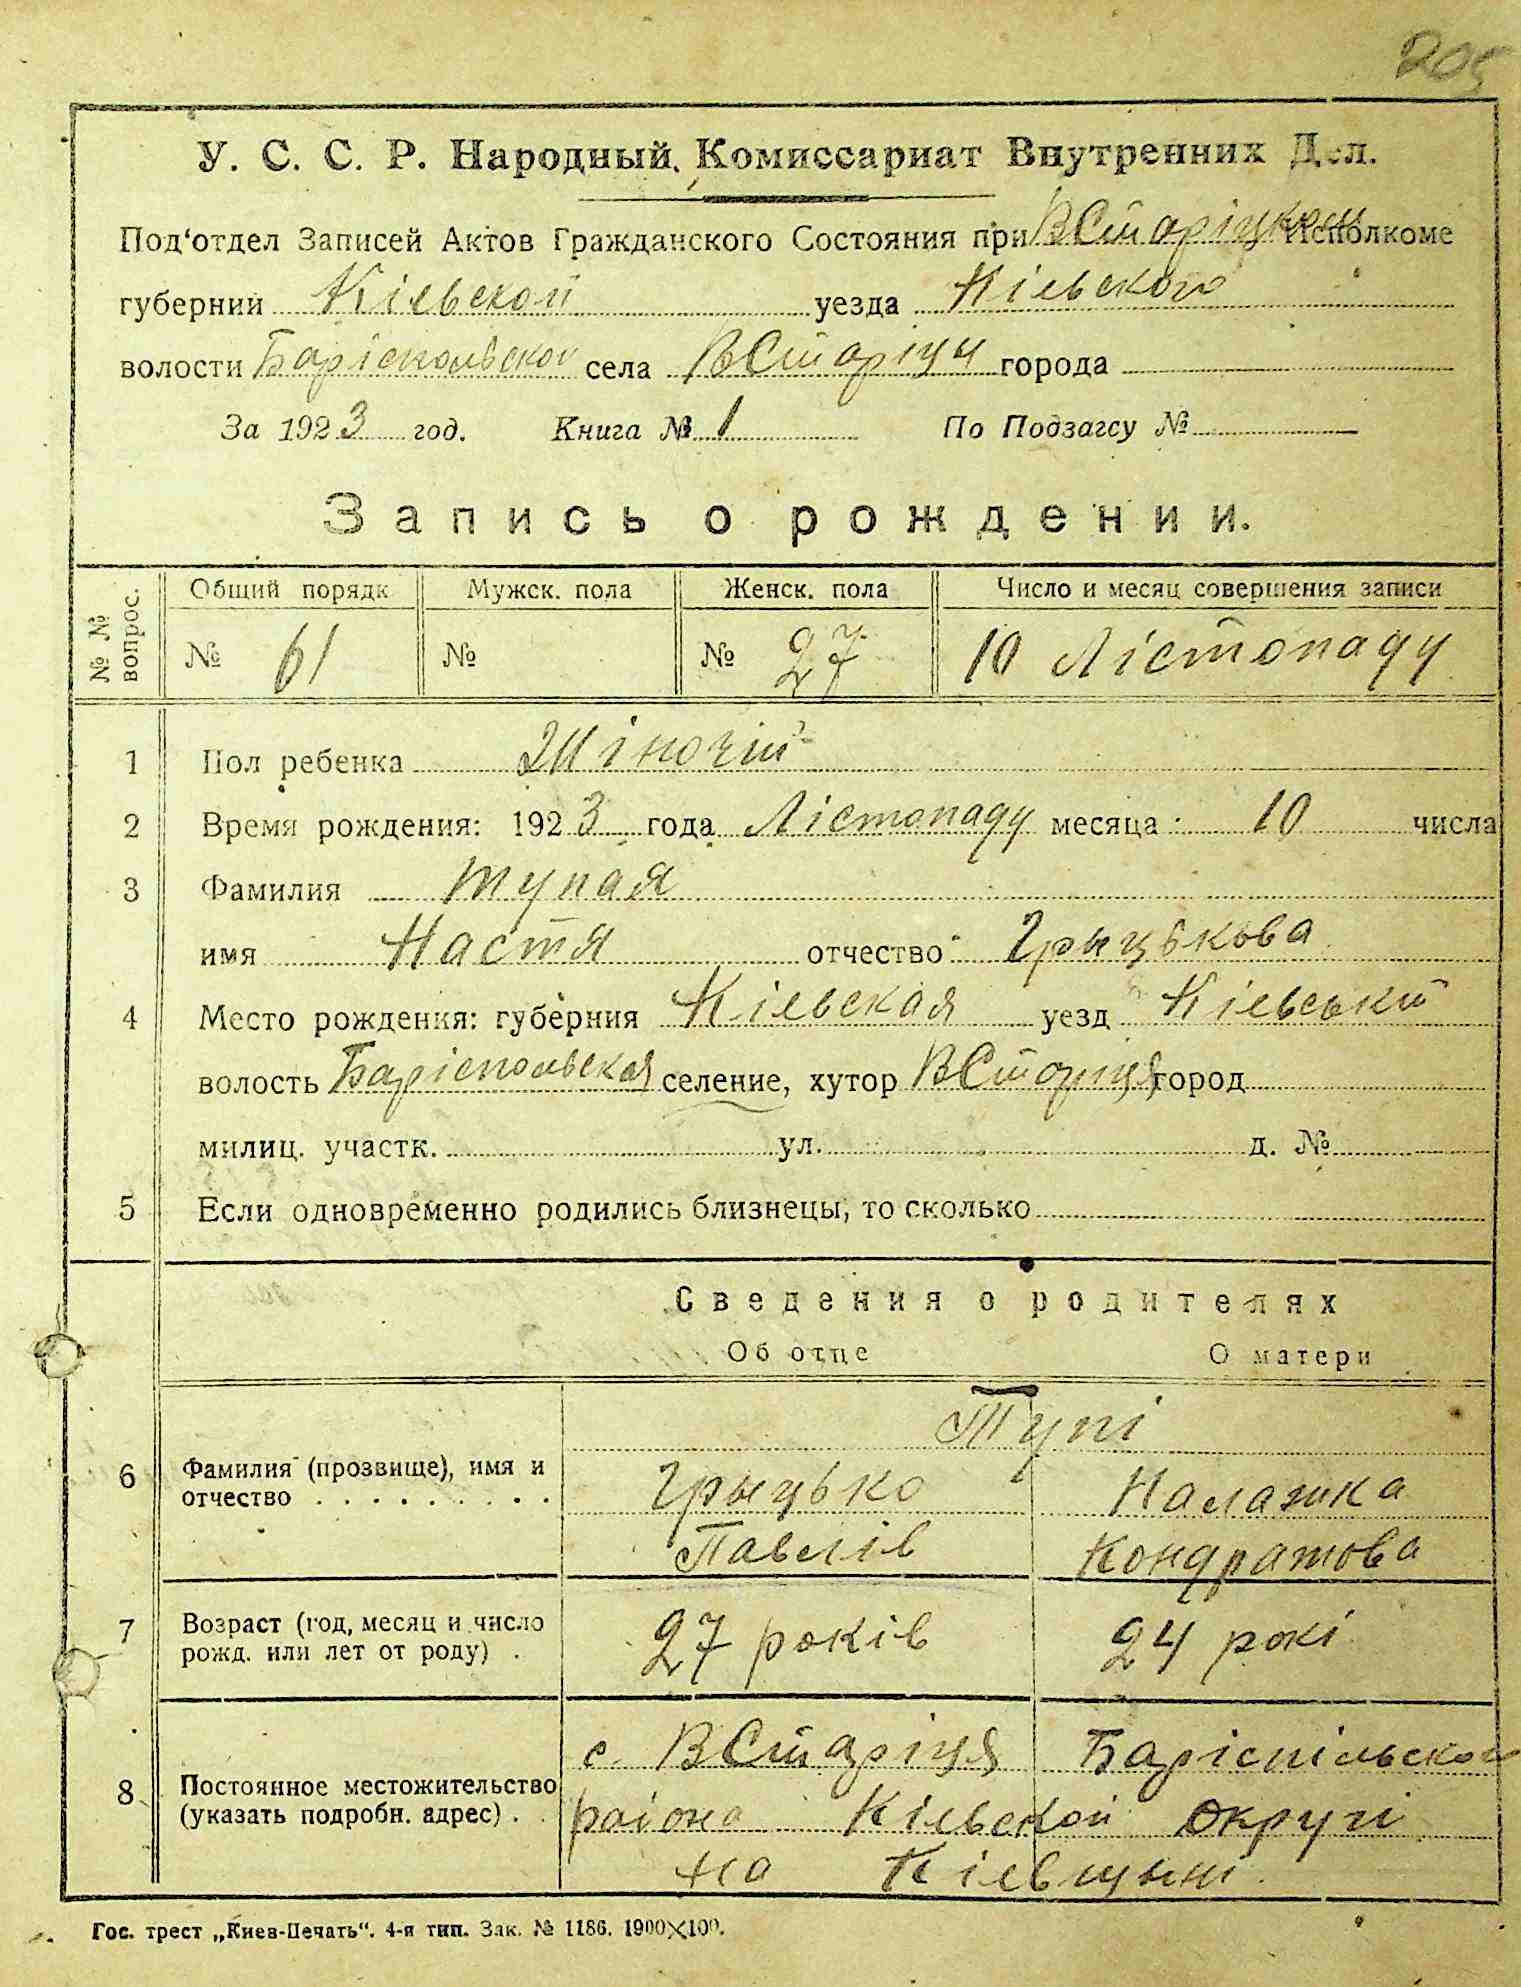 205
У. С. С. Р. Народный Комиссариат Внутренних Дел.
Под'отдел Записей Актов Гражданского Состояния при ВСтаріцком Исполкоме
губернии Кіевской уезда Кіевского
волости Баріспольской села ВСтаріци города
За 1923 год. Книга № 1 По Подзагсу №
Запись о рождении.
№ № вопрос. Общий порядк Мужск. пола Женск. пола Число и месяц совершения записи
№ 61 № № 27 10 Лістопаду
1 Пол ребенка Жіночій
2 Время рождения: 1923 года Лістопаду месяца 10 числа
3 Фамилия Тупая
имя Настя отчество Грыцькова
4 Место рождения: губерния Кіевская уезд Кіевський
волость Баріспольская селение, хутор ВСтаріця город
милиц. участк. ул. д. №
5 Если одновременно родились близнецы, то сколько
Сведения о родителях
Об отце О матери
Тупі
6 Фамилия (прозвище), имя и Грыцько Палажка
отчество Павлів Кондратова
7 Возраст (год, месяц и число 27 років 24 рокі
рожд. или лет от роду)
с. ВСтаріця Баріспільского
8 Постоянное местожительство района Кіевской округі
(указать подробн. адрес) на Кіевщыні
Гос. трест „Киев-Печать“. 4-я тип. Зак. № 1186. 1900×100.